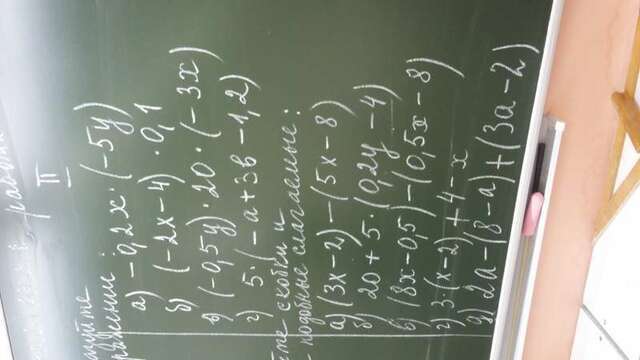 работа
II
а) -0,2x·(-5y)
б) (-2x-4)·0,1
в) (-0,5y)·20·(-3x)
г) 5·(-a+3b-1,2)
скобки и
подобные слагаемые:
а) (3x-2)-(5x-8)
б) 20+5·(0,2y-4)
в) (8x-0,5)-(0,5x-8)
г) 3·(x-2)+4-x
д) 2a-(8-a)+(3a-2)